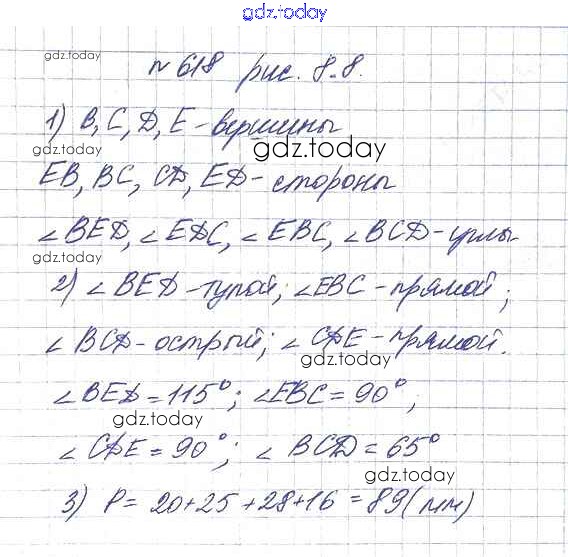 gdz.today
gdz.today
№ 618 рис. 8.8.
1) B, C, D, E - вершины
gdz.today
gdz.today
EB, BC, CD, ED - стороны
∠BED, ∠EDC, ∠EBC, ∠BCD - углы
gdz.today
2) ∠BED - тупой; ∠EBC - прямой;
∠BCD - острый; ∠CDE - прямой.
gdz.today
∠BED = 115°; ∠EBC = 90°,
gdz.today
∠CDE = 90°; ∠BCD = 65°
gdz.today
3) P = 20+25+28+16 = 89 (мм)